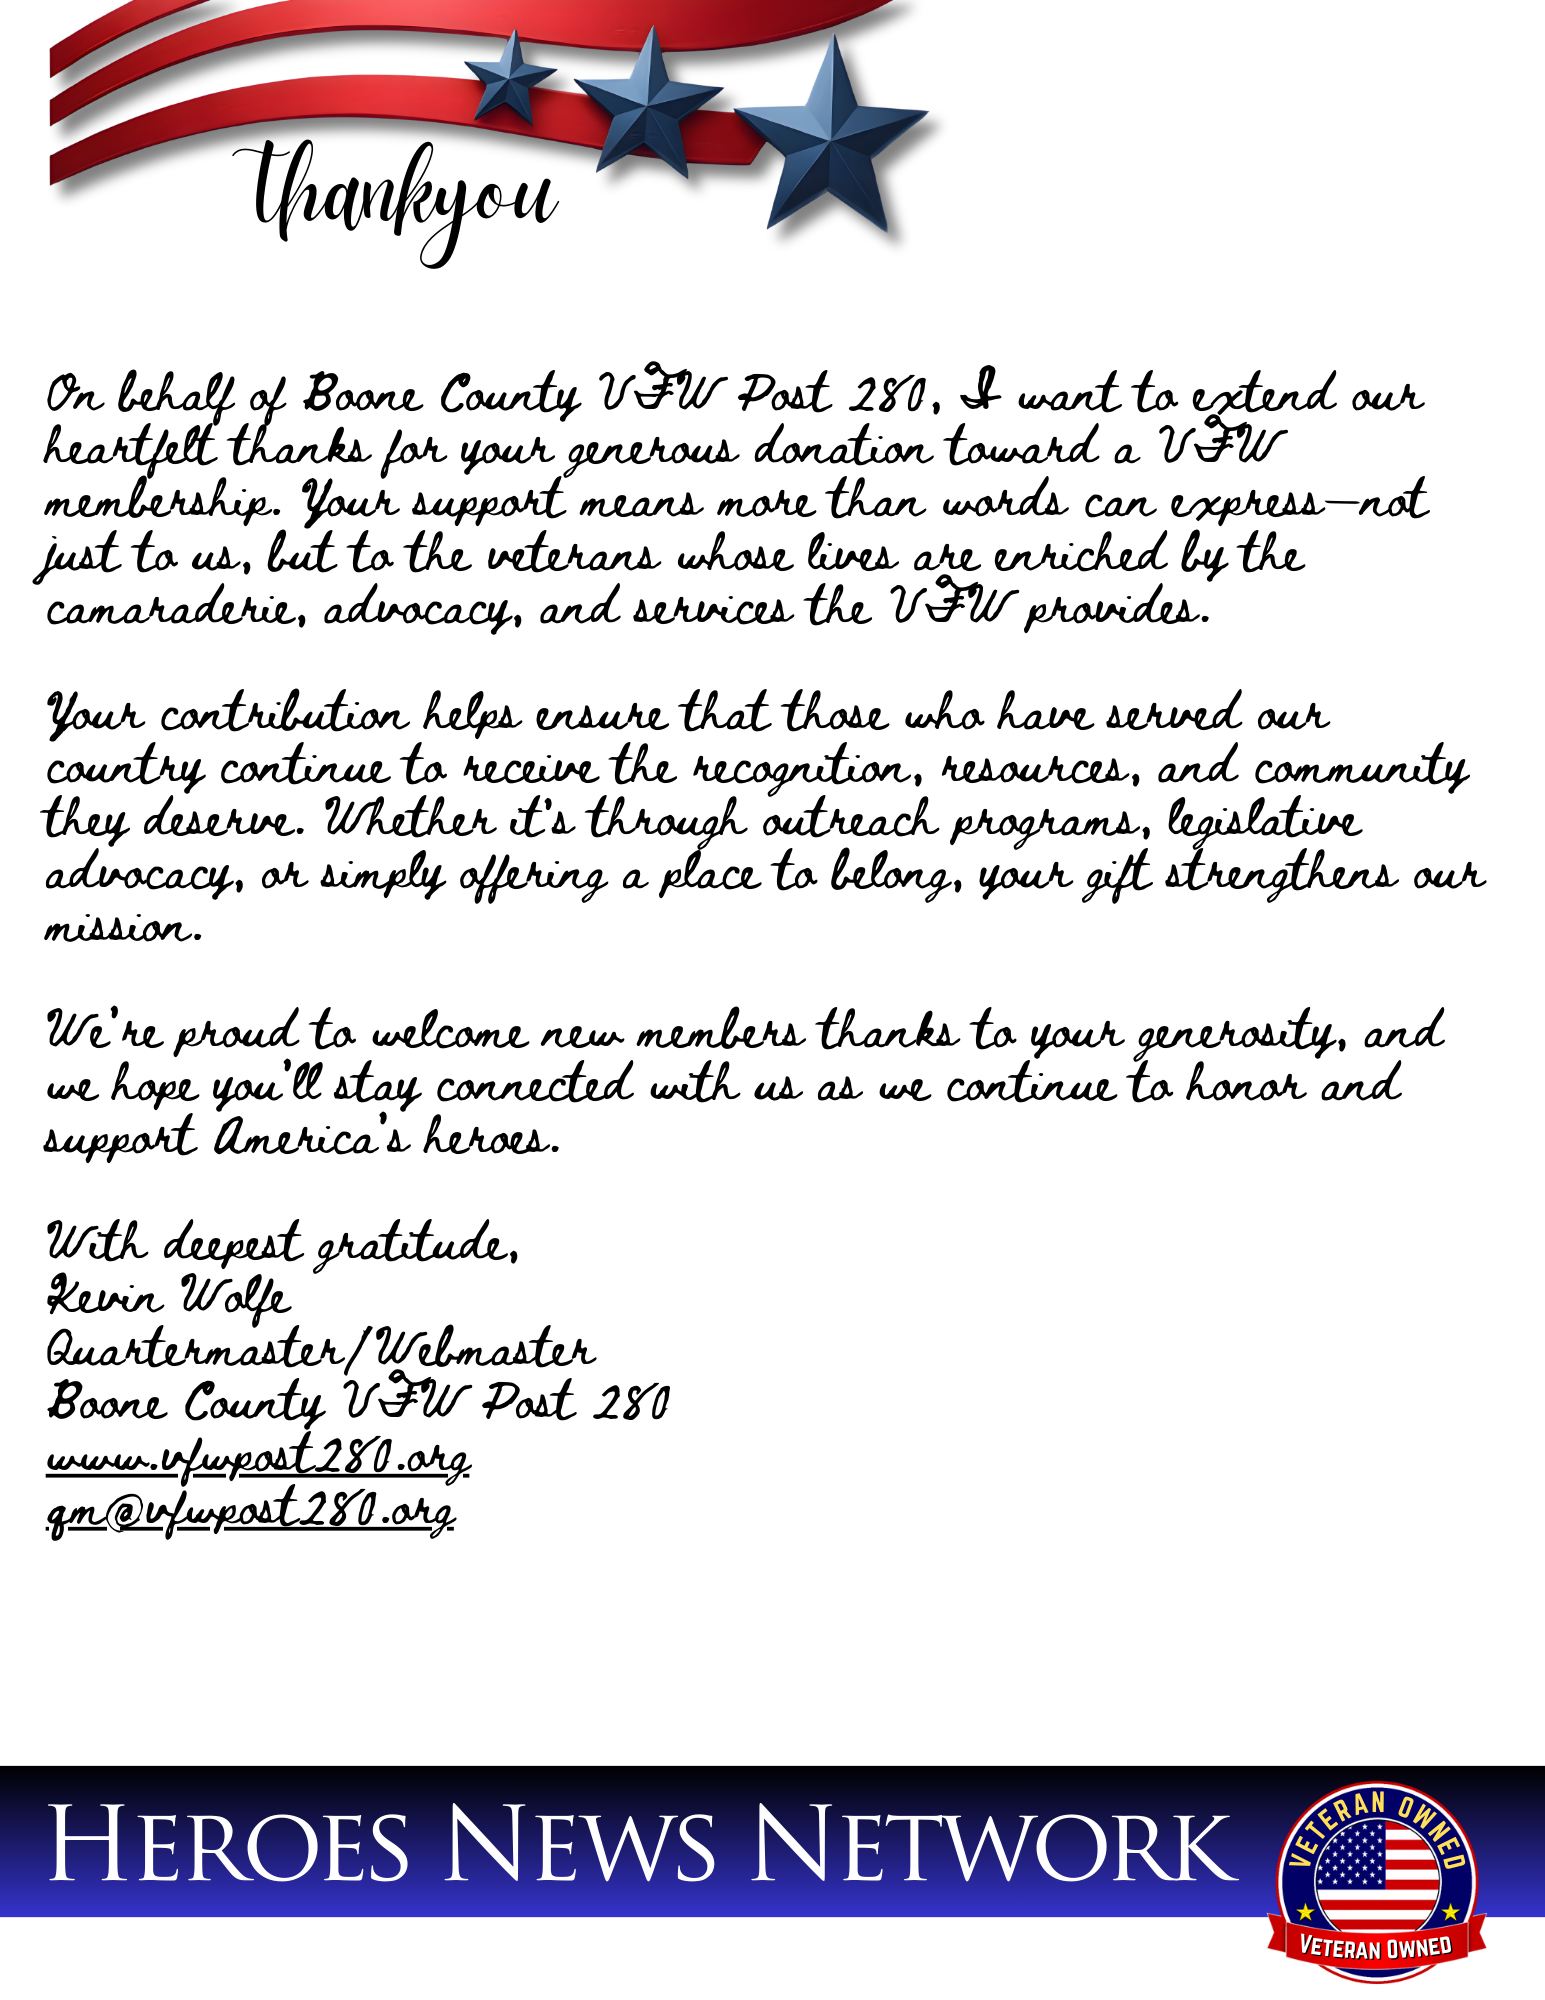 thankyou
On behalf of Boone County VFW Post 280, I want to extend our
heartfelt thanks for your generous donation toward a VFW
membership. Your support means more than words can express—not
just to us, but to the veterans whose lives are enriched by the
camaraderie, advocacy, and services the VFW provides.
Your contribution helps ensure that those who have served our
country continue to receive the recognition, resources, and community
they deserve. Whether it's through outreach programs, legislative
advocacy, or simply offering a place to belong, your gift strengthens our
mission.
We're proud to welcome new members thanks to your generosity, and
we hope you'll stay connected with us as we continue to honor and
support America's heroes.
With deepest gratitude,
Kevin Wolfe
Quartermaster/Webmaster
Boone County VFW Post 280
www.vfwpost280.org
qm@vfwpost280.org
HEROES NEWS NETWORK
VETERAN OWNED
VETERAN OWNED